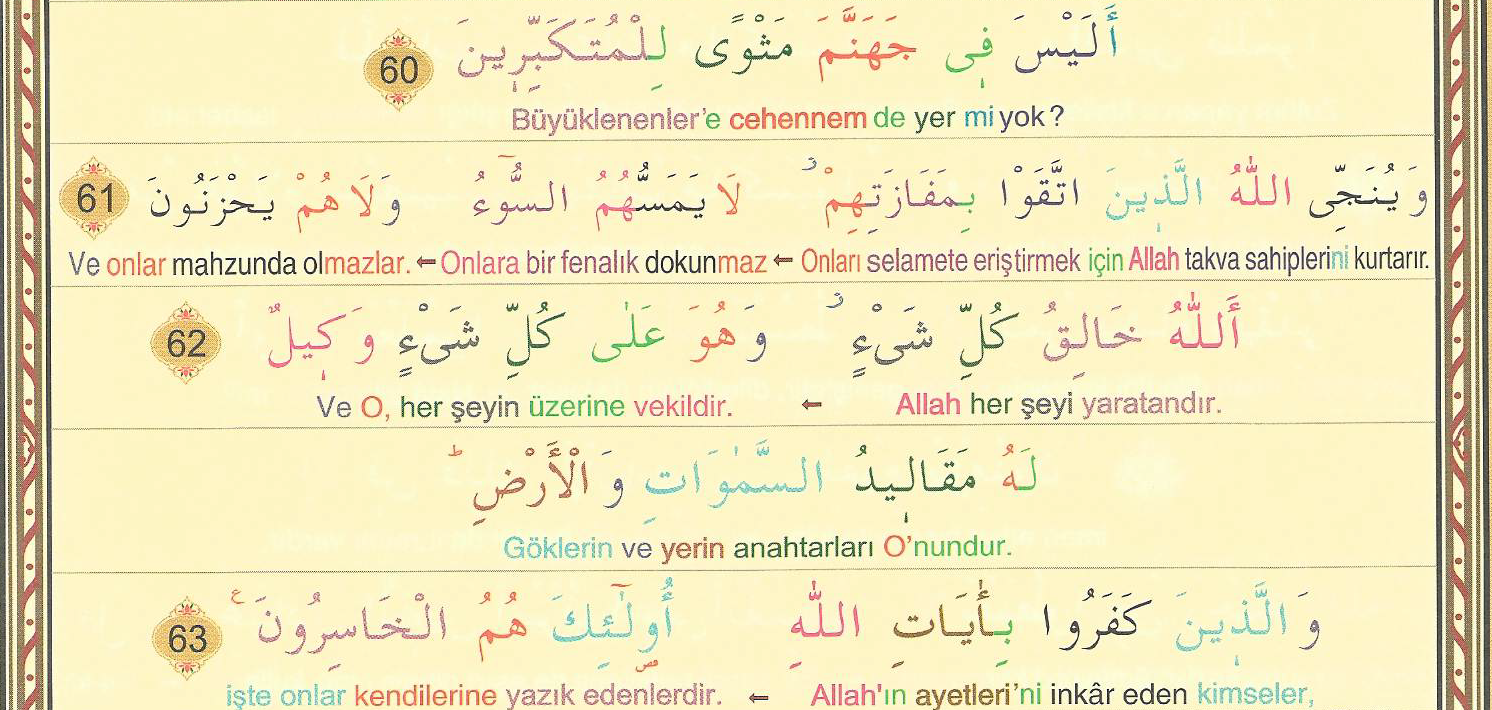 أَلَيْسَ فٖى جَهَنَّمَ مَثْوًى لِلْمُتَكَبِّرٖينَ 60
Büyüklenenler'e cehennem de yer mi yok?
وَ يُنَجِّى اللّٰهُ الَّذٖينَ اتَّقَوْا بِمَفَازَتِهِمْؗ لَا يَمَسُّهُمُ السُّٓوءُ وَلَا هُمْ يَحْزَنُونَ 61
Ve onlar mahzunda olmazlar. ← Onlara bir fenalık dokunmaz ← Onları selamete eriştirmek için Allah takva sahiplerini kurtarır.
أَللّٰهُ خَالِقُ كُلِّ شَىْءٍؗ وَ هُوَ عَلٰى كُلِّ شَىْءٍ وَ كٖيلٌ 62
Ve O, her şeyin üzerine vekildir. ← Allah her şeyi yaratandır.
لَهُ مَقَالٖيدُ السَّمٰوَاتِ وَ الْأَرْضِؕ
Göklerin ve yerin anahtarları O'nundur.
وَ الَّذٖينَ كَفَرُوا بِأٰيَاتِ اللّٰهِ أُولٰٓئِكَ هُمُ الْخَاسِرُونَ ع 63
işte onlar kendilerine yazık edenlerdir. ← Allah'ın ayetleri'ni inkâr eden kimseler,